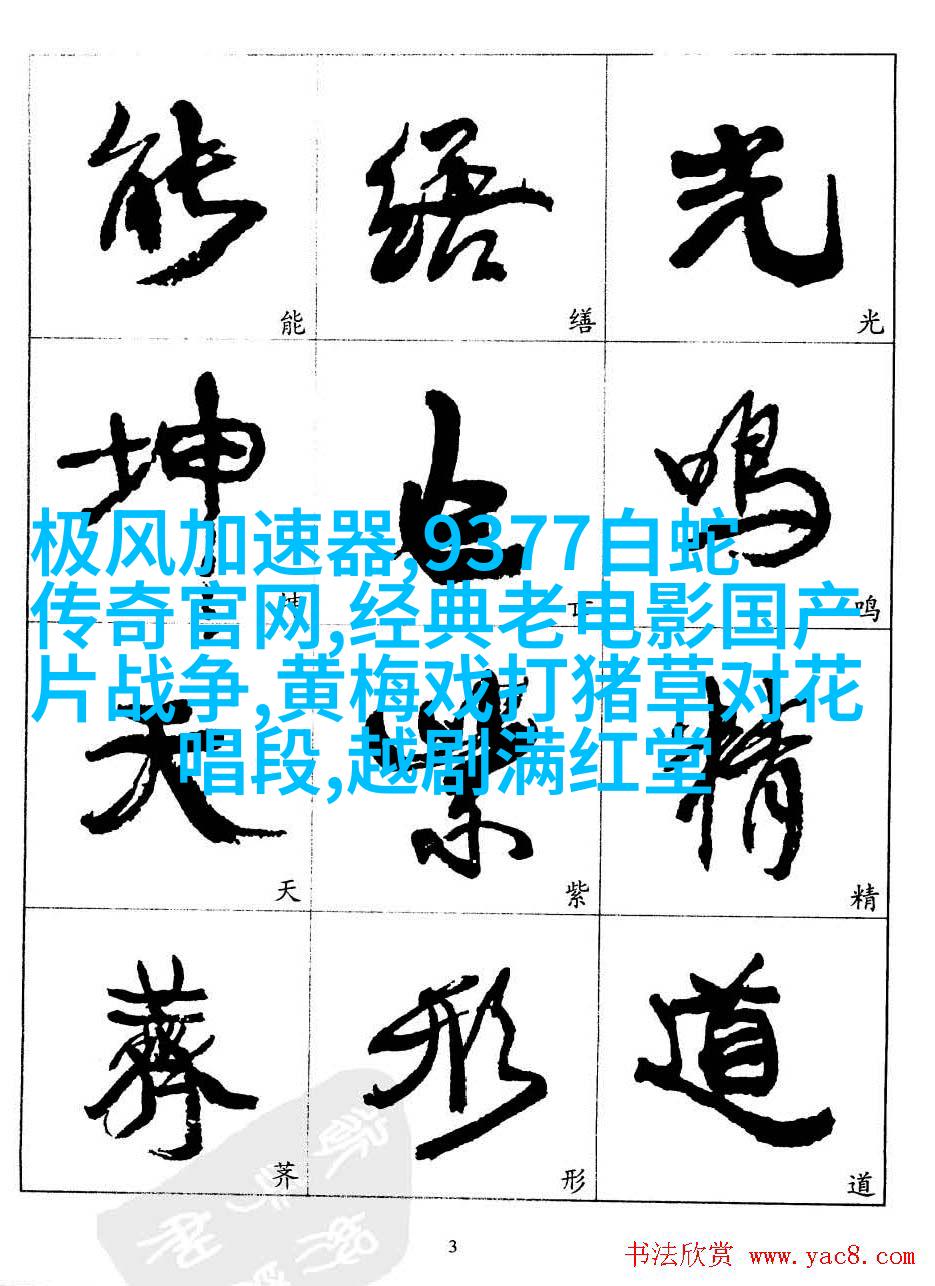 能 繕 光
能 缮 光
坤 亡 鳴
鸣
极风加速器,9377白蛇
传奇官网,经典老电影国产
片战争,黄梅戏打猪草对花
唱段,越剧满红堂
天 紫 精
天 紫 精
薺 形 道
荠 形 道
3
书法欣赏 www.yac8.com